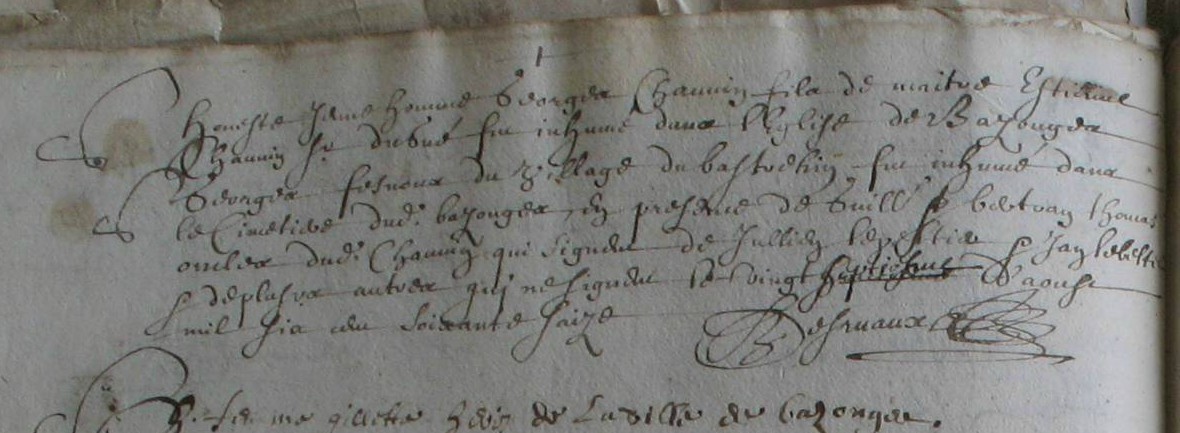 honeste Jeune homme Georges Chauvin fils de maitre Estienne
Chauvin Sr dusné fut inhumé dans l'Eglise de Bazouges
Georges fesnoux du village du bastrehin fut inhumé dans
le Cimetiere dud. bazouges en presence de Guill bertran thomas
oncles dud. Chauvin qui signent de Jullien Jan
& de plusrs autres qui ne signent le vingt septiesme d'aoust
mil six cen soixante saize
Desruaux
gillette de la ville de bazouges.